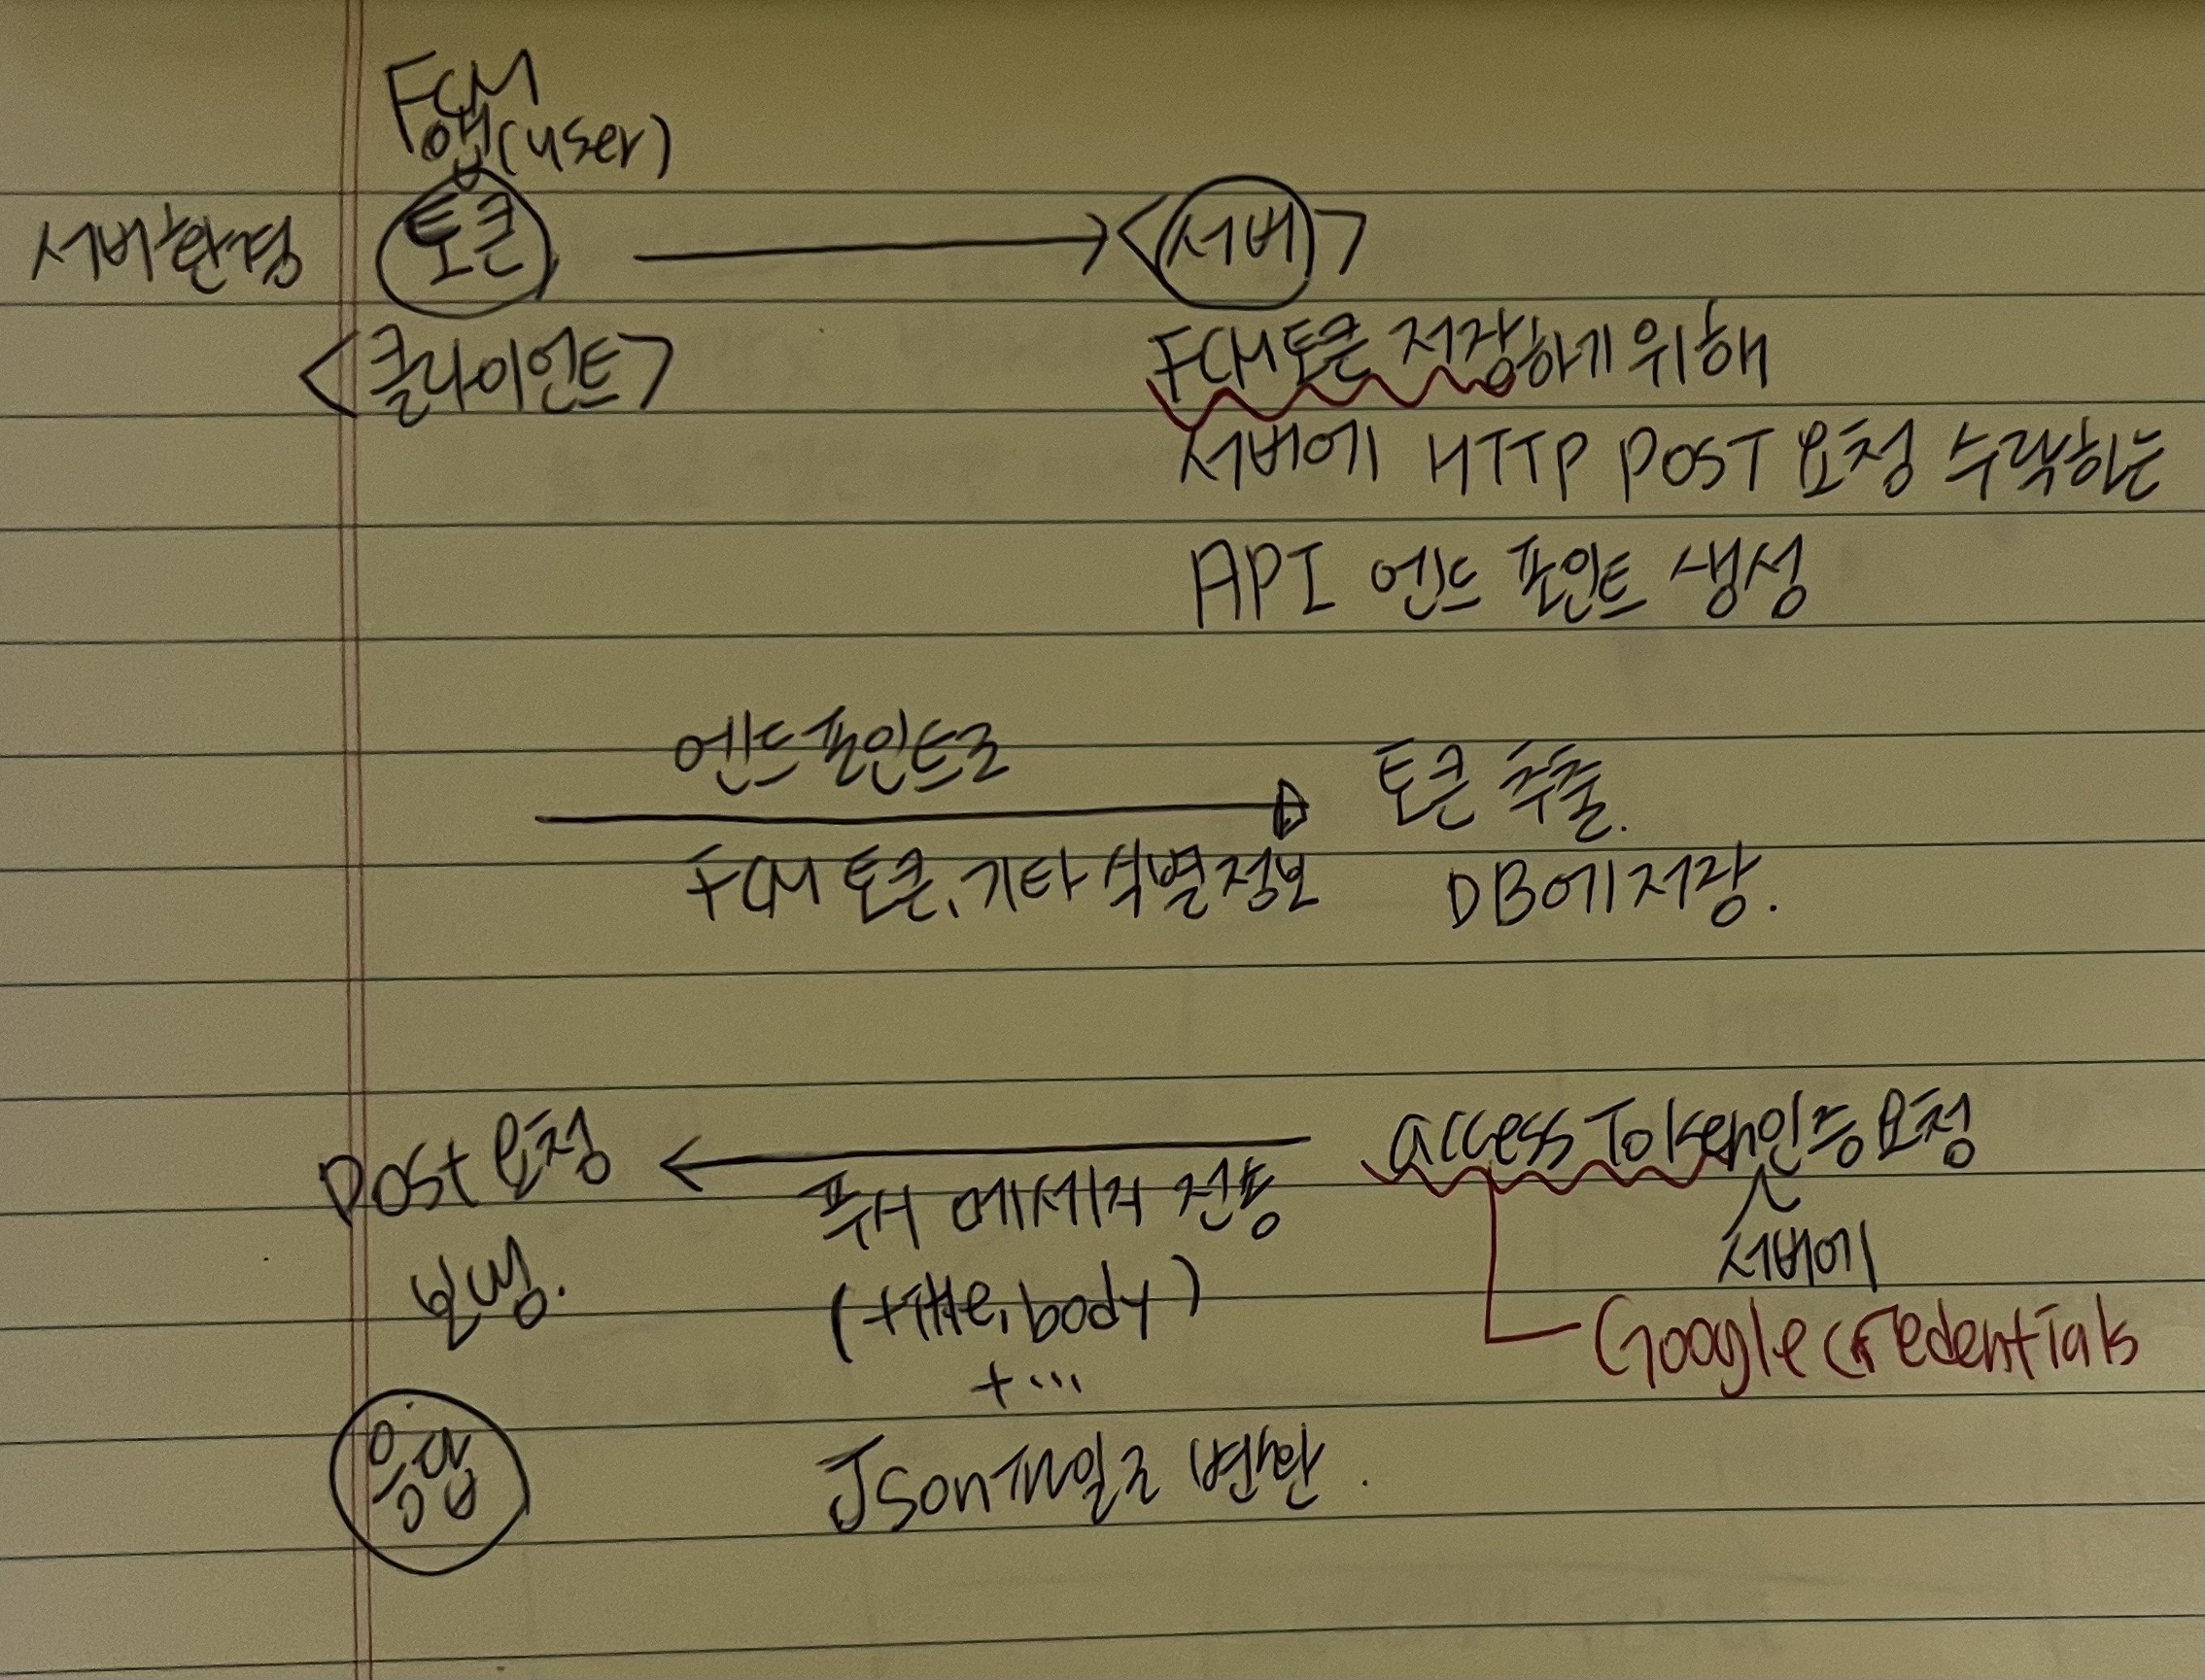 FCM
앱(user)
서버환경 토큰 <서버>
<클라이언트>
FCM토큰 저장하기 위해
서버에 HTTP POST 요청 수락하는
API 엔드 포인트 생성
엔드포인트로
FCM 토큰, 기타 식별정보
토큰 추출.
DB에 저장.
access Token인증요청
서버에
Google credentials
푸시 메세지 전송
(title, body)
+...
Json파일로 변환.
Post 요청
보냄.
응답